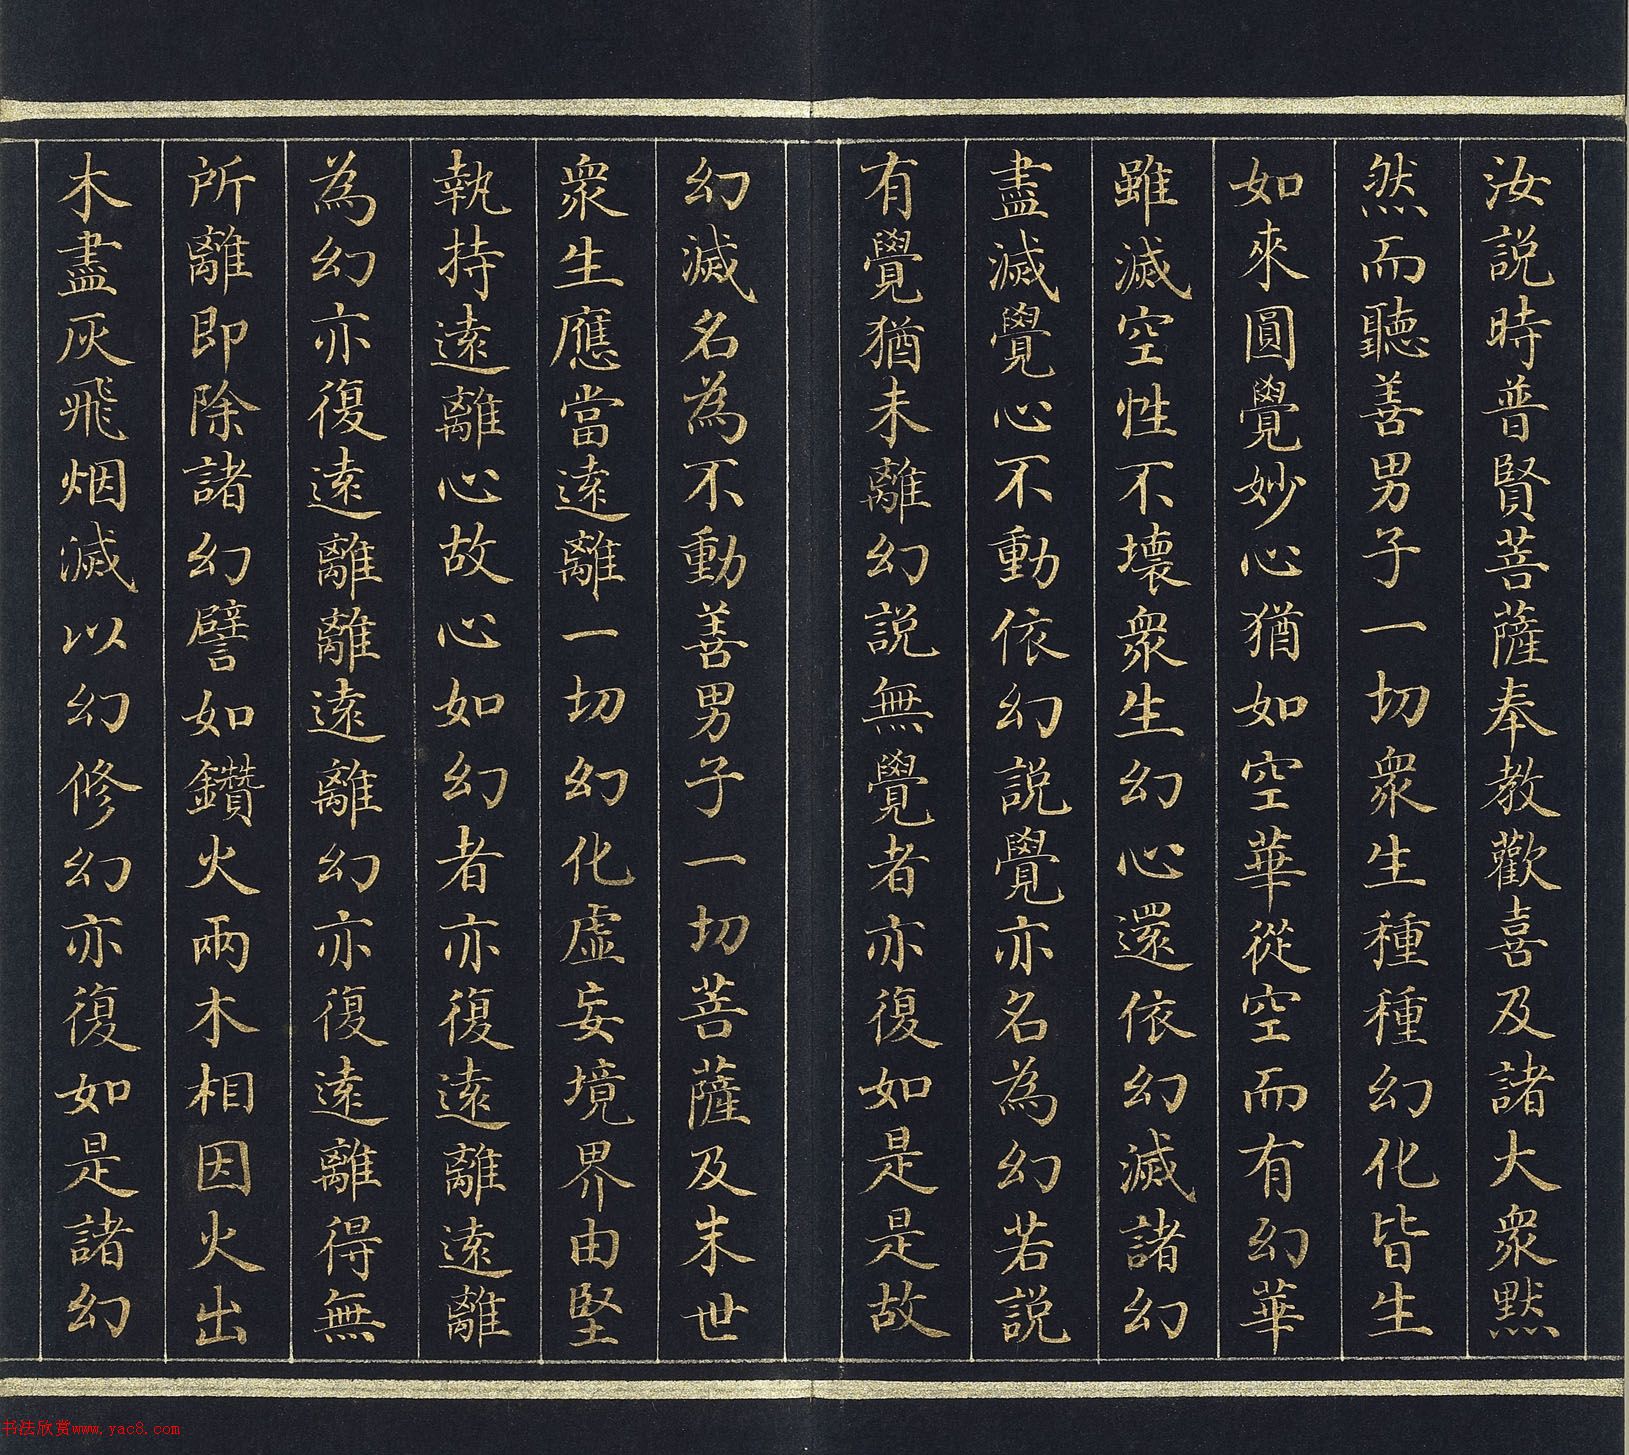 汝說時普賢菩薩奉教歡喜及諸大衆默
然而聽善男子一切衆生種種幻化皆生
如來圓覺妙心猶如空華從空而有幻華
雖滅空性不壞衆生幻心還依幻滅諸幻
盡滅覺心不動依幻說覺亦名為幻若說
有覺猶未離幻說無覺者亦復如是是故
幻滅名為不動善男子一切菩薩及末世
衆生應當遠離一切幻化虛妄境界由堅
執持遠離心故心如幻者亦復遠離遠離
為幻亦復遠離離遠離幻亦復遠離得無
所離即除諸幻譬如鑽火兩木相因火出
木盡灰飛烟滅以幻修幻亦復如是諸幻
书法欣赏www.yac8.com